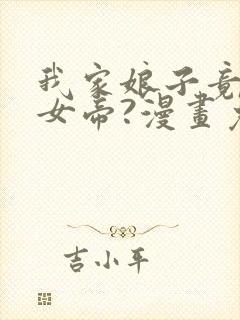 我家娘子竟
女帝?漫畫免
吉小平